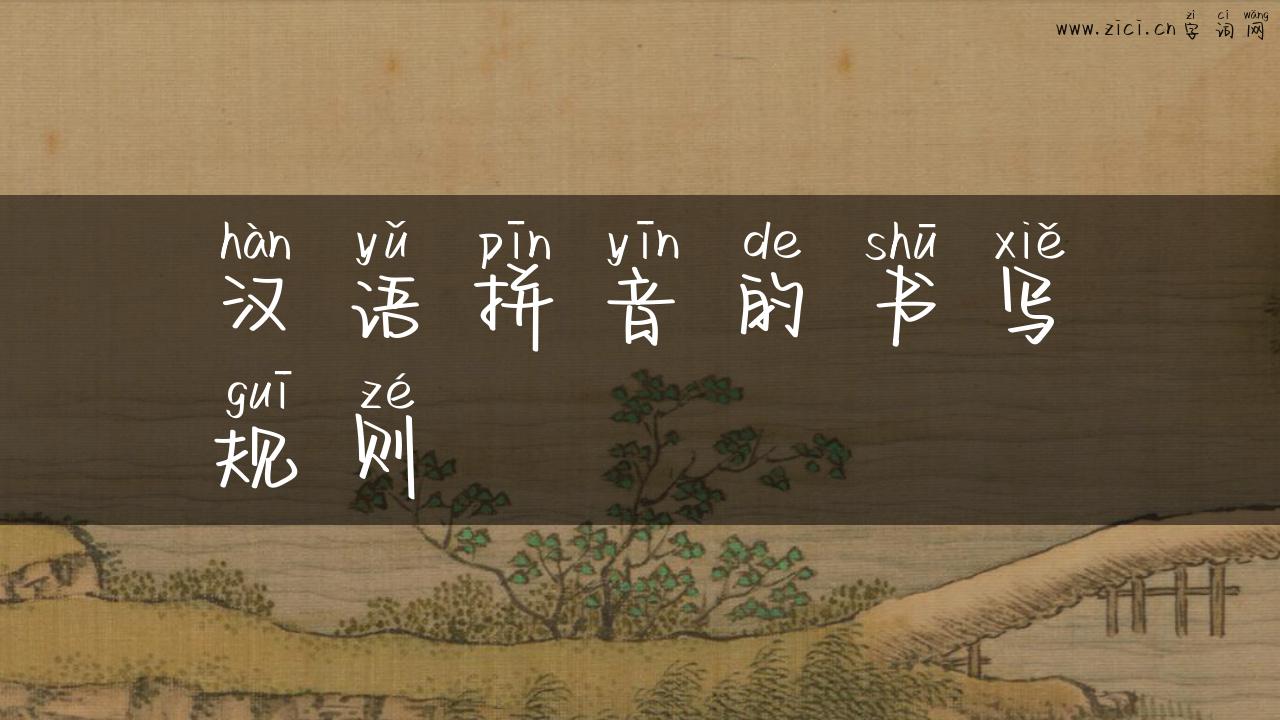 zì cí wǎng
www.zici.cn 字词网
hàn yǔ pīn yīn de shū xiě
汉语拼音的书写
guī zé
规则